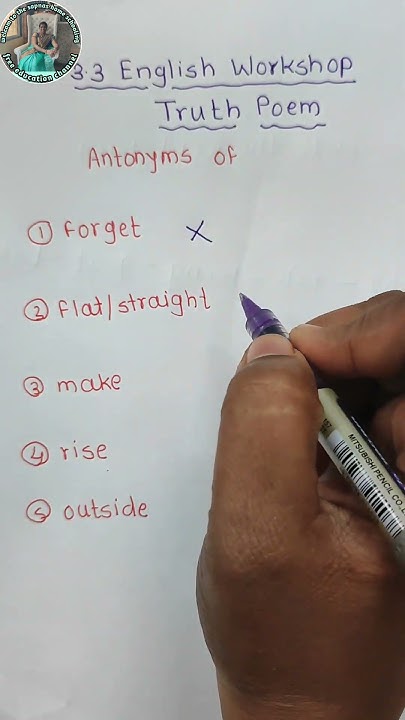 welcome to the sapnas home schooling
free education channel
3.3 English Workshop
Truth Poem
Antonyms of
① forget X
② flat/straight
③ make
④ rise
⑤ outside
MITSUBISHI PENCIL CO.